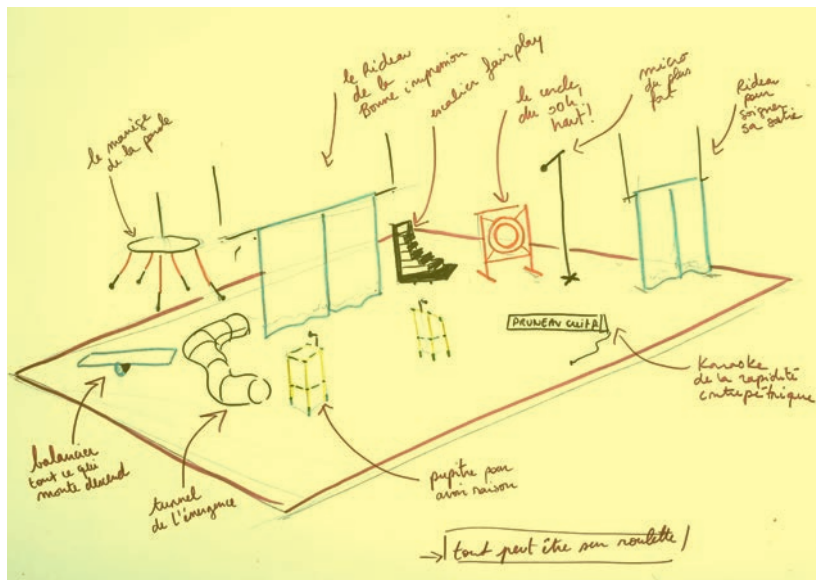 le manège
de la parole
le Rideau
de la
Bonne impression
escalier fairplay
le cercle,
du ooh,
haut!
micro
du plus
fort
Rideau
pour
soigner
sa sortie
PRUNEAU CUIT
Karaoke
de la rapidité
contrepétrique
balancier
tout ce qui
monte descend
tunnel
de l'émergence
pupitre pour
avoir raison
→ tout peut être sur roulette